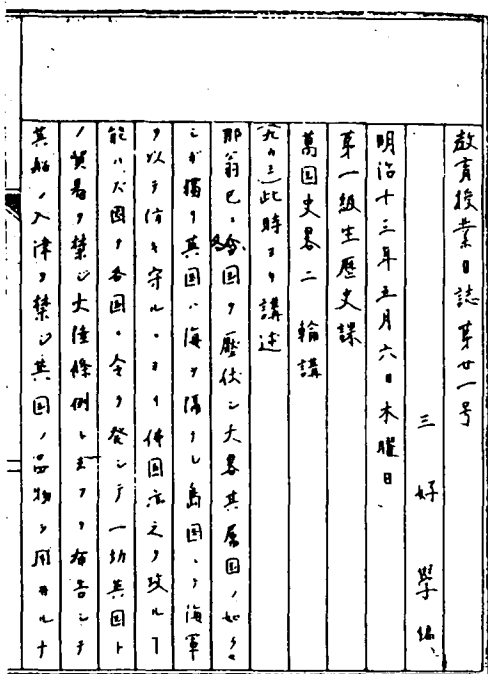 教育授業日誌第廿一号
三好學編
明治十三年五月六日木曜日
第一級生歴史課
萬国史畧二 輪講
此時ヨリ講述
那翁已ニ各国ヲ壓伏シ大畧其属国ノ如クセ
シガ獨リ英国ハ海ヲ隔タル島国ニテ海軍
ヲ以テ倍々守ルニヨリ佛国亦之ヲ攻ルヿ
能ハズ因テ各国ニ令ヲ発シテ一切英国ト
ノ貿易ヲ禁ジ大陸條例ト云フヲ布告シテ
其船ノ入津ヲ禁ジ英国ノ品物ヲ用井ルナ